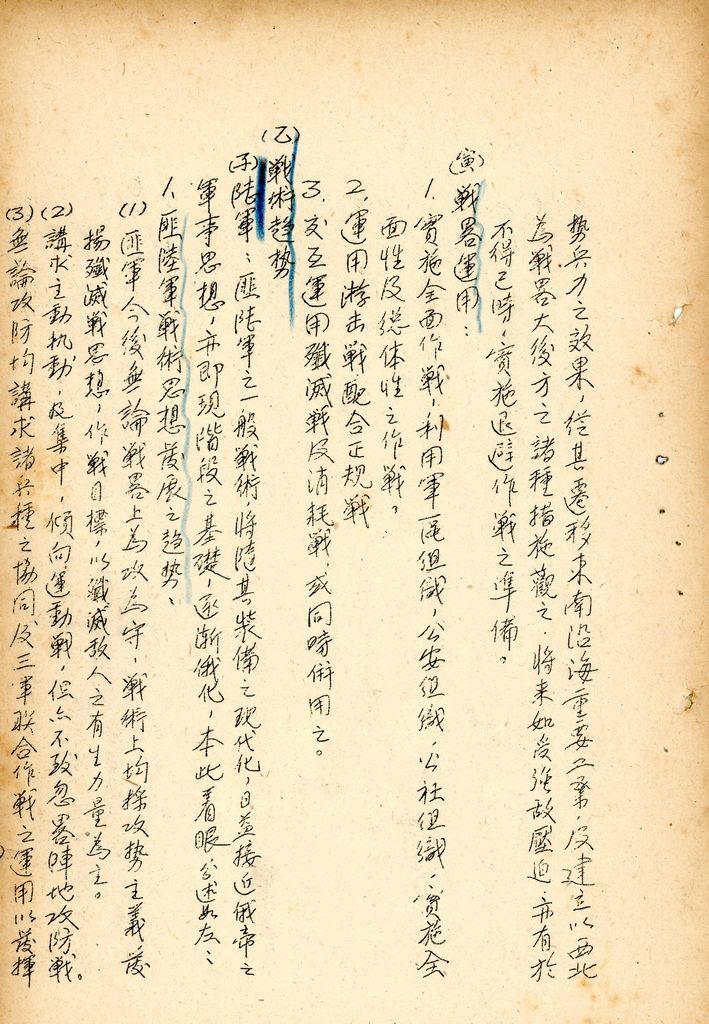 勢兵力之效果，從其遷移東南沿海重要工業，及建立以西北
為戰畧大後方之諸種措施觀之，將来如受强敌壓迫，亦有於
不得已時，實施退避作戰之準備。
(寅)戰畧運用：
1. 實施全面作戰，利用軍區組織，公安組織，公社組織，實施全
面性及總体性之作戰。
2. 運用游击戰配合正規戰
3. 交互運用殲滅戰及消耗戰，或同時併用之。
(乙)戰術趋勢
(子)陸軍：匪陸軍之一般戰術，將隨其裝備之現代化，日益接近俄帝之
軍事思想，亦即現階段之基礎，逐漸俄化，本此着眼分述如左：
1. 匪陸軍戰術思想發展之趋勢：
(1)匪軍今後無論戰畧上為攻為守，戰術上均採攻勢主義，發
揚殲滅戰思想，作戰目標，以殲滅敌人之有生力量為主。
(2)講求主動机動，及集中，傾向運動戰，但亦不致忽畧陣地攻防戰。
(3)無論攻防均講求諸兵種之協同及三軍联合作戰之運用以發揮